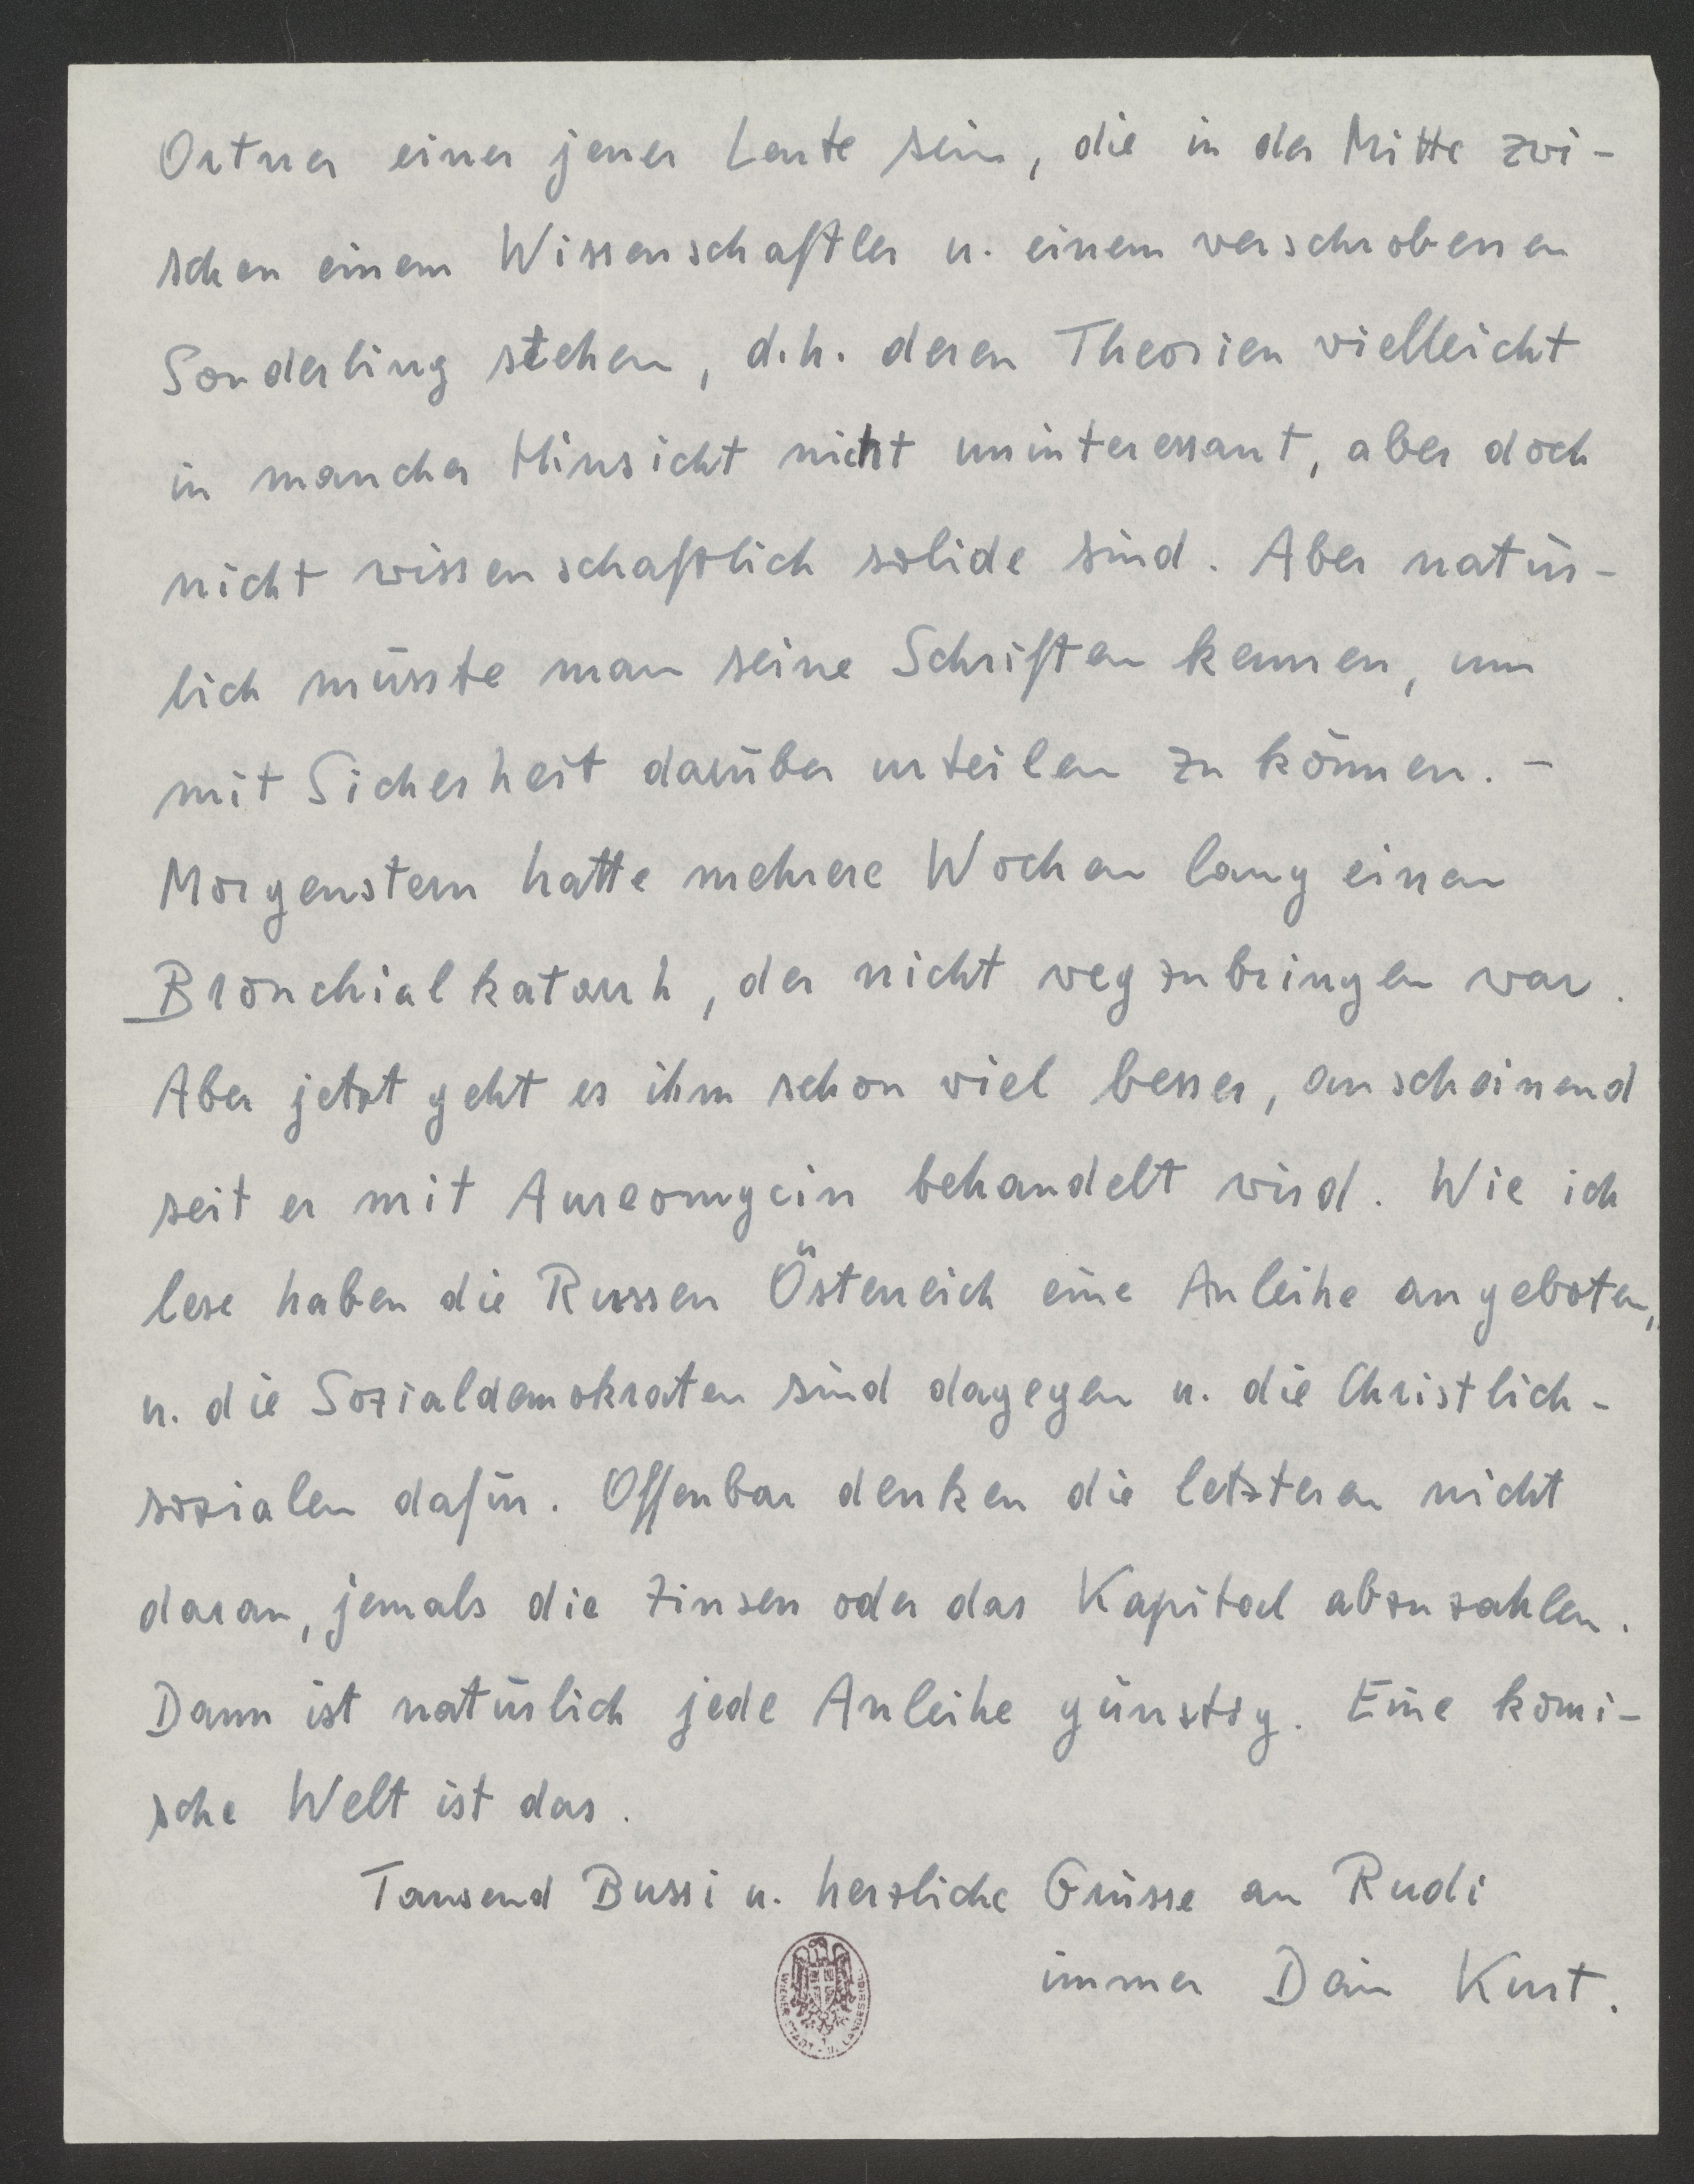 Ortner einer jener Leute sein, die in der Mitte zwi-
schen einem Wissenschaftler u. einem verschrobenen
Sonderling stehen, d.h. deren Theorien vielleicht
in mancher Hinsicht nicht uninteressant, aber doch
nicht wissenschaftlich solide sind. Aber natür-
lich müsste man seine Schriften kennen, um
mit Sicherheit darüber urteilen zu können. –
Morgenstern hatte mehrere Wochen lang einen
Bronchialkatarrh, der nicht wegzubringen war.
Aber jetzt geht es ihm schon viel besser, anscheinend
seit er mit Aureomycin behandelt wird. Wie ich
lese haben die Russen Österreich eine Anleihe angeboten,
u. die Sozialdemokraten sind dagegen u. die Christlich-
sozialen dafür. Offenbar denken die letzteren nicht
daran, jemals die Zinsen oder das Kapital abzuzahlen.
Dann ist natürlich jede Anleihe günstig. Eine komi-
sche Welt ist das.
Tausend Bussi u. herzliche Grüsse an Rudi
immer Dein Kurt.
WIENER STADT- U. LANDESBIBL.